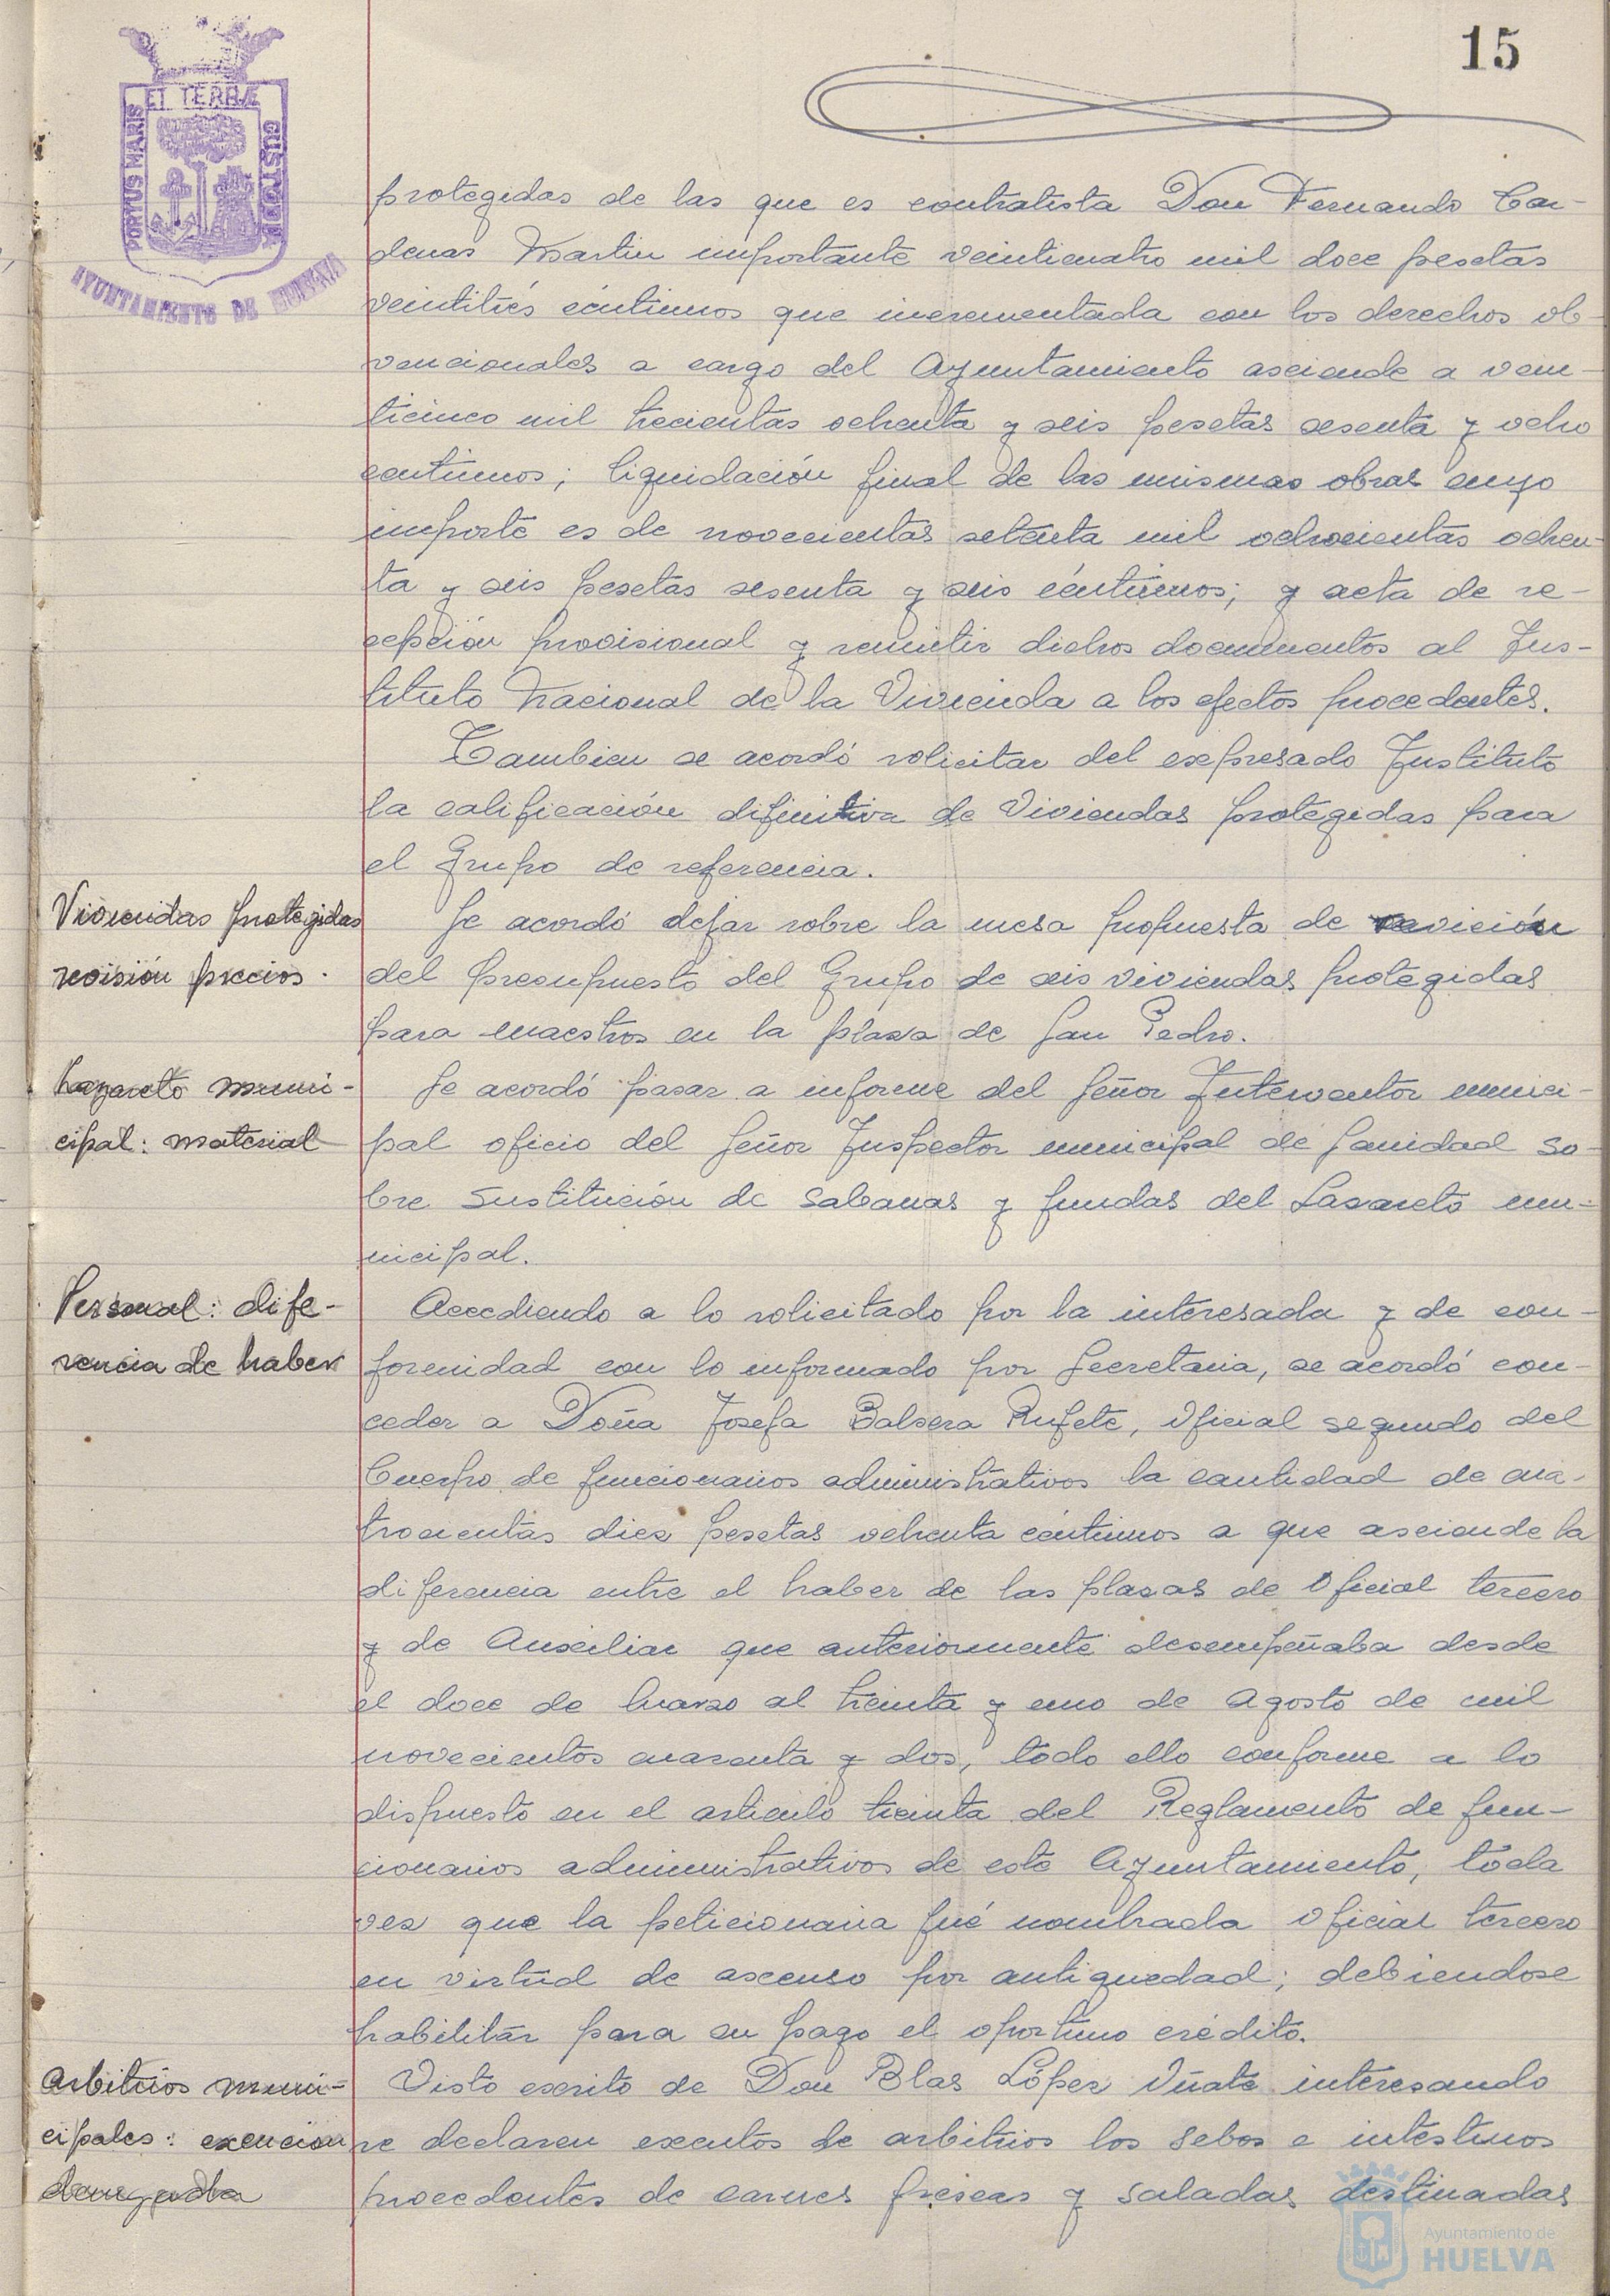 15
PORTUS MARIS ET TERRÆ CUSTODIA
AYUNTAMIENTO DE HUELVA
protegidas de las que es contratista Don Fernando Car-
denas Martin importante veinticuatro mil doce pesetas
veintitrés céntimos que incrementada con los derechos ob-
vencionales a cargo del Ayuntamiento asciende a vein-
ticinco mil trecientas ochenta y seis pesetas sesenta y ocho
centimos; liquidación final de las mismas obras cuyo
importe es de novecientas setenta mil ochocientas ochen-
ta y seis pesetas sesenta y seis céntimos; y acta de re-
cepción provisional y remitir dichos documentos al Ins-
tituto Nacional de la Vivienda a los efectos procedentes.
Tambien se acordó solicitar del expresado Instituto
la calificación difinitiva de Viviendas protegidas para
el Grupo de referencia.
Viviendas protegidas
revisión precios.
Se acordó dejar sobre la mesa propuesta de revición
del presupuesto del Grupo de seis viviendas protegidas
para maestros en la plaza de San Pedro.
Lazareto muni-
cipal: material
Se acordó pasar a informe del Señor Interventor munici-
pal oficio del Señor Inspector municipal de Sanidad so-
bre sustitución de sabanas y fundas del Lazareto mu-
nicipal.
Personal: dife-
rencia de haber
Accediendo a lo solicitado por la interesada y de con-
formidad con lo informado por Secretaria, se acordó con-
ceder a Doña Josefa Balsera Rufete, Oficial segundo del
Cuerpo de funcionarios administrativos la cantidad de cua-
trocientas diez pesetas ochenta céntimos a que asciende la
diferencia entre el haber de las plazas de Oficial tercero
y de Auxiliar que anteriormente desempeñaba desde
el doce de marzo al treinta y uno de Agosto de mil
novecientos cuarenta y dos, todo ello conforme a lo
dispuesto en el articulo treinta del Reglamento de fun-
cionarios administrativos de este Ayuntamiento, toda
vez que la peticionaria fué nombrada Oficial tercero
en virtud de ascenso por antiguedad; debiendose
habilitar para su pago el oportuno crédito.
Arbitrios muni-
cipales: exencion
denegada
Visto escrito de Don Blas López Uñate interesando
se declaren exentos de arbitrios los sebos e intestinos
procedentes de carnes frescas y saladas destinadas
Ayuntamiento de
HUELVA